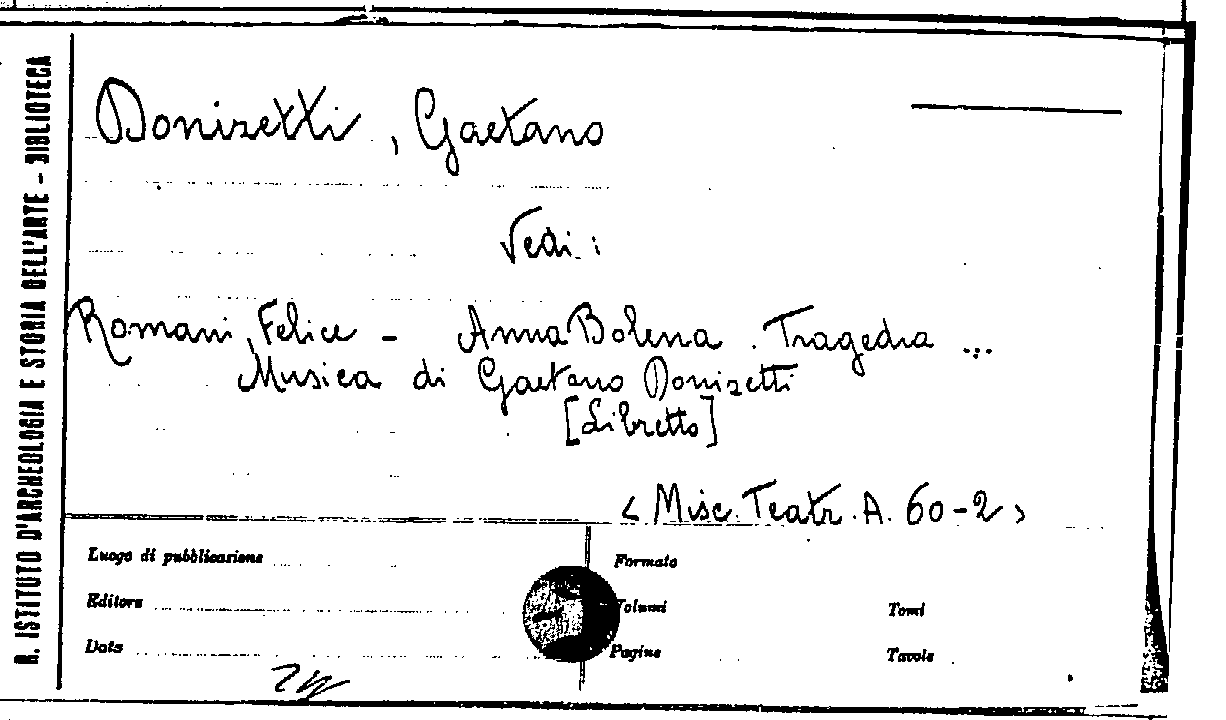 R. ISTITUTO D'ARCHEOLOGIA E STORIA DELL'ARTE - BIBLIOTECA
Donizetti, Gaetano
Vedi:
Romani, Felice - Anna Bolena. Tragedia ...
Musica di Gaetano Donizetti
[Libretto]
< Misc. Teatr. A. 60-2 >
Luogo di pubblicazione
Formato
Editore
Volumi
Tomi
Data
Pagine
Tavole